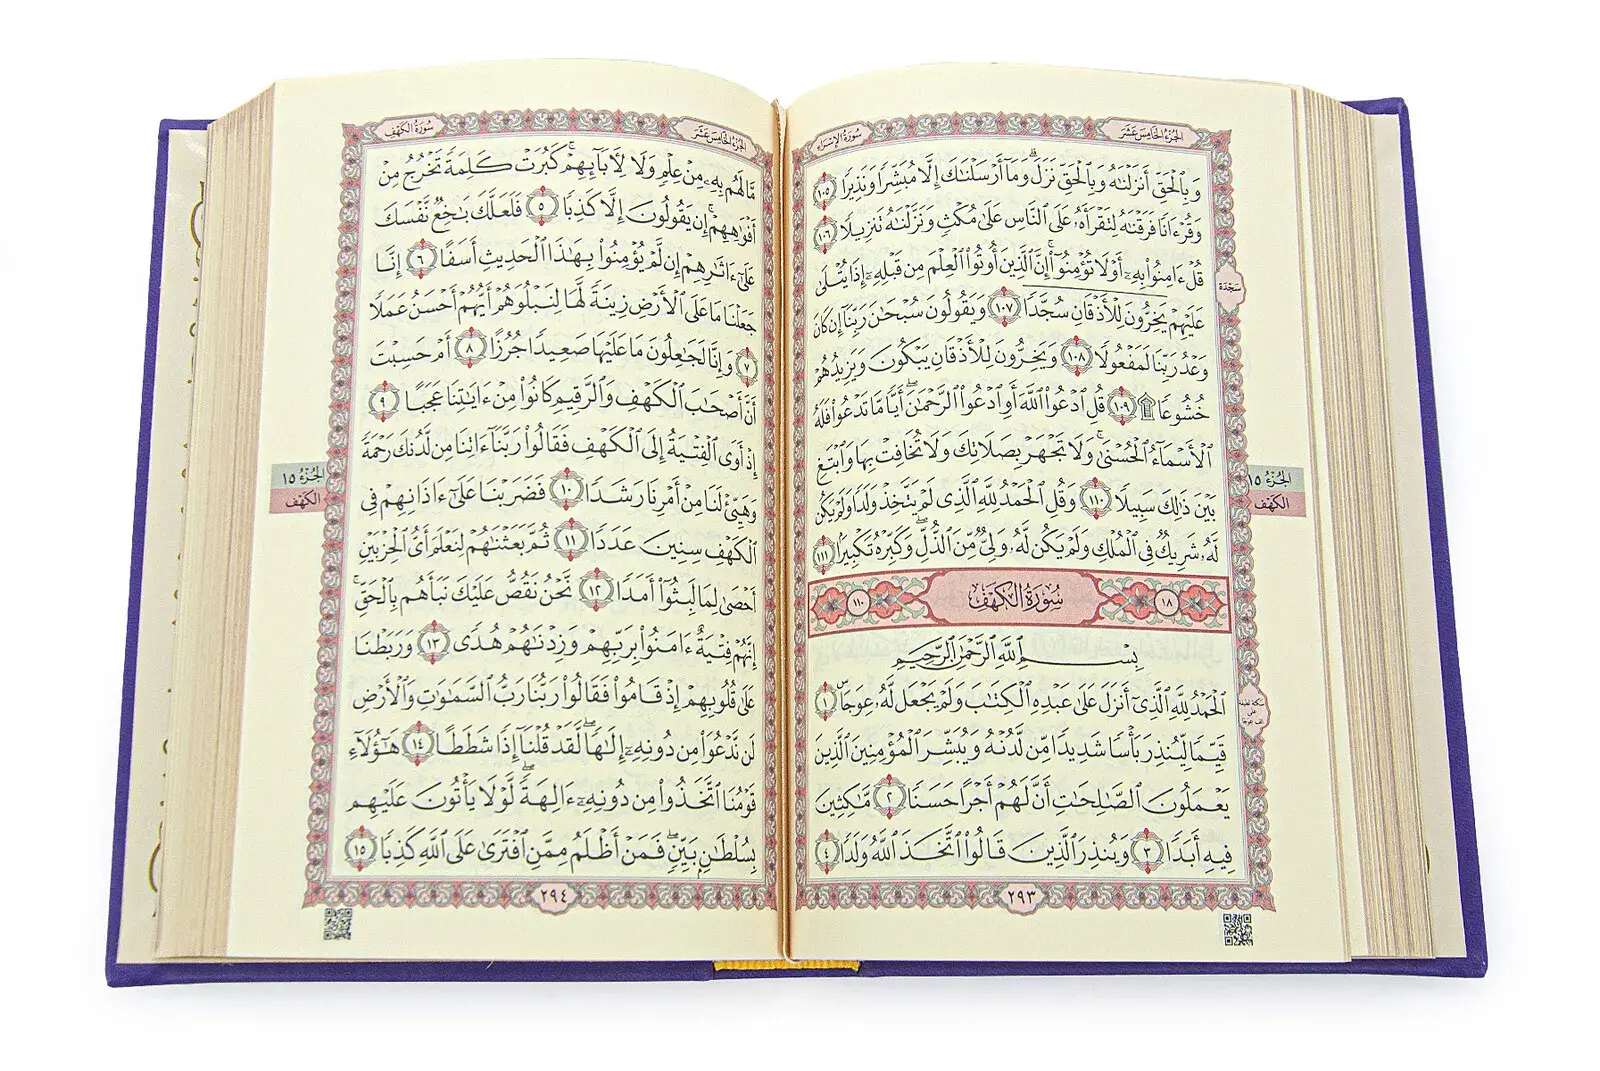 الجُزْءُ الخَامِسَ عَشَرَ
سُورَةُ الإِسْرَاءِ
وَبِٱلْحَقِّ أَنزَلْنَٰهُ وَبِٱلْحَقِّ نَزَلَۗ وَمَآ أَرْسَلْنَٰكَ إِلَّا مُبَشِّرًا وَنَذِيرًا ١٠٥
وَقُرْءَانًا فَرَقْنَٰهُ لِتَقْرَأَهُۥ عَلَى ٱلنَّاسِ عَلَىٰ مُكْثٍ وَنَزَّلْنَٰهُ تَنزِيلًا ١٠٦
قُلْ ءَامِنُوا۟ بِهِۦٓ أَوْ لَا تُؤْمِنُوٓا۟ۚ إِنَّ ٱلَّذِينَ أُوتُوا۟ ٱلْعِلْمَ مِن قَبْلِهِۦٓ إِذَا يُتْلَىٰ
سَجْدَة
عَلَيْهِمْ يَخِرُّونَ لِلْأَذْقَانِ سُجَّدًا ١٠٧ وَيَقُولُونَ سُبْحَٰنَ رَبِّنَآ إِن كَانَ
وَعْدُ رَبِّنَا لَمَفْعُولًا ١٠٨ وَيَخِرُّونَ لِلْأَذْقَانِ يَبْكُونَ وَيَزِيدُهُمْ
خُشُوعًا ۩ ١٠٩ قُلِ ٱدْعُوا۟ ٱللَّهَ أَوِ ٱدْعُوا۟ ٱلرَّحْمَٰنَۖ أَيًّا مَّا تَدْعُوا۟ فَلَهُ
ٱلْأَسْمَآءُ ٱلْحُسْنَىٰۚ وَلَا تَجْهَرْ بِصَلَاتِكَ وَلَا تُخَافِتْ بِهَا وَٱبْتَغِ
بَيْنَ ذَٰلِكَ سَبِيلًا ١١٠ وَقُلِ ٱلْحَمْدُ لِلَّهِ ٱلَّذِى لَمْ يَتَّخِذْ وَلَدًا وَلَمْ يَكُن
لَّهُۥ شَرِيكٌ فِى ٱلْمُلْكِ وَلَمْ يَكُن لَّهُۥ وَلِىٌّ مِّنَ ٱلذُّلِّۖ وَكَبِّرْهُ تَكْبِيرًۢا ١١١
الجُزْءُ ١٥
الكَهْف
١٨ سُورَةُ الكَهْفِ ١١٠
بِسْمِ ٱللَّهِ ٱلرَّحْمَٰنِ ٱلرَّحِيمِ
ٱلْحَمْدُ لِلَّهِ ٱلَّذِىٓ أَنزَلَ عَلَىٰ عَبْدِهِ ٱلْكِتَٰبَ وَلَمْ يَجْعَل لَّهُۥ عِوَجَاۜ ١
سكتة لطيفة
على
ألف عوجا
قَيِّمًا لِّيُنذِرَ بَأْسًا شَدِيدًا مِّن لَّدُنْهُ وَيُبَشِّرَ ٱلْمُؤْمِنِينَ ٱلَّذِينَ
يَعْمَلُونَ ٱلصَّٰلِحَٰتِ أَنَّ لَهُمْ أَجْرًا حَسَنًا ٢ مَّٰكِثِينَ
فِيهِ أَبَدًا ٣ وَيُنذِرَ ٱلَّذِينَ قَالُوا۟ ٱتَّخَذَ ٱللَّهُ وَلَدًا ٤
٢٩٣
الجُزْءُ الخَامِسَ عَشَرَ
سُورَةُ الكَهْفِ
مَّا لَهُم بِهِۦ مِنْ عِلْمٍ وَلَا لِـَٔابَآئِهِمْۚ كَبُرَتْ كَلِمَةً تَخْرُجُ مِنْ
أَفْوَٰهِهِمْۚ إِن يَقُولُونَ إِلَّا كَذِبًا ٥ فَلَعَلَّكَ بَٰخِعٌ نَّفْسَكَ
عَلَىٰٓ ءَاثَٰرِهِمْ إِن لَّمْ يُؤْمِنُوا۟ بِهَٰذَا ٱلْحَدِيثِ أَسَفًا ٦ إِنَّا
جَعَلْنَا مَا عَلَى ٱلْأَرْضِ زِينَةً لَّهَا لِنَبْلُوَهُمْ أَيُّهُمْ أَحْسَنُ عَمَلًا
٧ وَإِنَّا لَجَٰعِلُونَ مَا عَلَيْهَا صَعِيدًا جُرُزًا ٨ أَمْ حَسِبْتَ
أَنَّ أَصْحَٰبَ ٱلْكَهْفِ وَٱلرَّقِيمِ كَانُوا۟ مِنْ ءَايَٰتِنَا عَجَبًا ٩
إِذْ أَوَى ٱلْفِتْيَةُ إِلَى ٱلْكَهْفِ فَقَالُوا۟ رَبَّنَآ ءَاتِنَا مِن لَّدُنكَ رَحْمَةً
وَهَيِّئْ لَنَا مِنْ أَمْرِنَا رَشَدًا ١٠ فَضَرَبْنَا عَلَىٰٓ ءَاذَانِهِمْ فِى
الجُزْءُ ١٥
الكَهْف
ٱلْكَهْفِ سِنِينَ عَدَدًا ١١ ثُمَّ بَعَثْنَٰهُمْ لِنَعْلَمَ أَىُّ ٱلْحِزْبَيْنِ
أَحْصَىٰ لِمَا لَبِثُوٓا۟ أَمَدًا ١٢ نَّحْنُ نَقُصُّ عَلَيْكَ نَبَأَهُم بِٱلْحَقِّۚ
إِنَّهُمْ فِتْيَةٌ ءَامَنُوا۟ بِرَبِّهِمْ وَزِدْنَٰهُمْ هُدًى ١٣ وَرَبَطْنَا
عَلَىٰ قُلُوبِهِمْ إِذْ قَامُوا۟ فَقَالُوا۟ رَبُّنَا رَبُّ ٱلسَّمَٰوَٰتِ وَٱلْأَرْضِ
لَن نَّدْعُوَا۟ مِن دُونِهِۦٓ إِلَٰهًاۖ لَّقَدْ قُلْنَآ إِذًا شَطَطًا ١٤ هَٰٓؤُلَآءِ
قَوْمُنَا ٱتَّخَذُوا۟ مِن دُونِهِۦٓ ءَالِهَةًۖ لَّوْلَا يَأْتُونَ عَلَيْهِم
بِسُلْطَٰنٍۭ بَيِّنٍۖ فَمَنْ أَظْلَمُ مِمَّنِ ٱفْتَرَىٰ عَلَى ٱللَّهِ كَذِبًا ١٥
٢٩٤